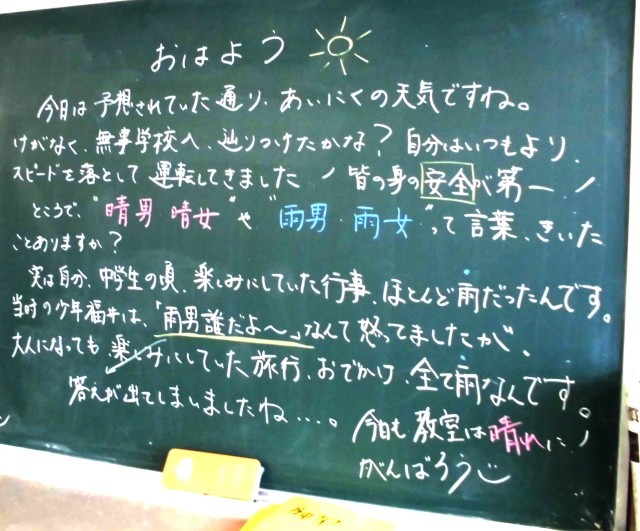 おはよう
今日は予想されていた通り、あいにくの天気ですね。
けがなく、無事学校へ、辿りつけたかな？自分はいつもより、
スピードを落として運転してきました！皆の身の安全が第一！
ところで、"晴男・晴女"や"雨男・雨女"って言葉、きいた
ことありますか？
実は自分、中学生の頃、楽しみにしていた行事、ほとんど雨だったんです。
当時の少年福井は、「雨男誰だよ〜」なんて怒ってましたが、
大人になっても楽しみにしていた旅行、おでかけ、全て雨なんです。
答えが出てしまいましたね…。
今日も教室は晴れに！
がんばろう